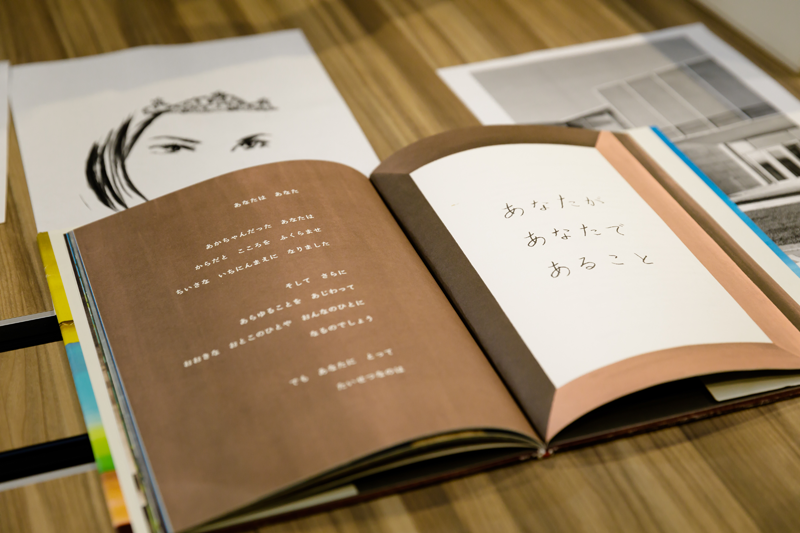 あなたは あなた
あかちゃんだった あなたは
からだと こころを ふくらませ
ちいさな いちにんまえに なりました
そして さらに
あらゆることを あじわって
おおきな おとこのひとや おんなのひとに
なるのでしょう
でも あなたに とって
たいせつなのは
あなたが
あなたで
あること